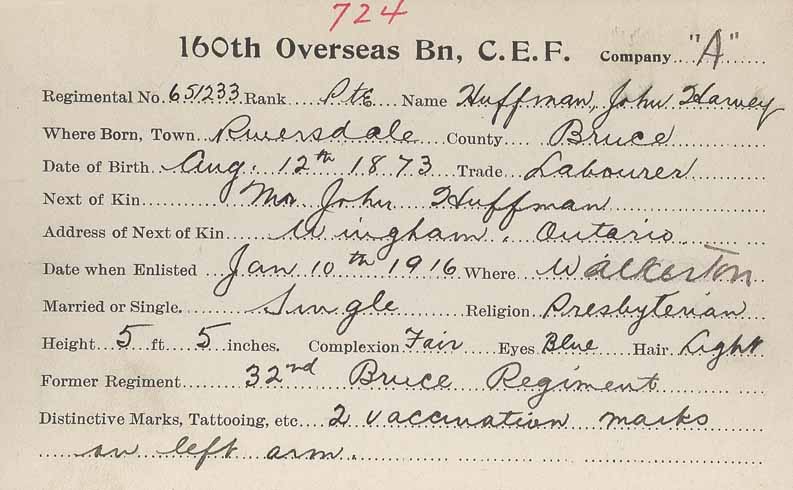 724
160th Overseas Bn, C.E.F. Company "A"
Regimental No. 651233 Rank Pte Name Huffman, John Harvey
Where Born, Town Riversdale County Bruce
Date of Birth Aug. 12th 1873 Trade Labourer
Next of Kin Mr John Huffman
Address of Next of Kin Wingham, Ontario
Date when Enlisted Jan 10th 1916 Where Walkerton
Married or Single. Single Religion Presbyterian
Height 5 ft 5 inches. Complexion Fair Eyes Blue Hair Light
Former Regiment 32nd Bruce Regiment
Distinctive Marks, Tattooing, etc 2 vaccination marks
on left arm.